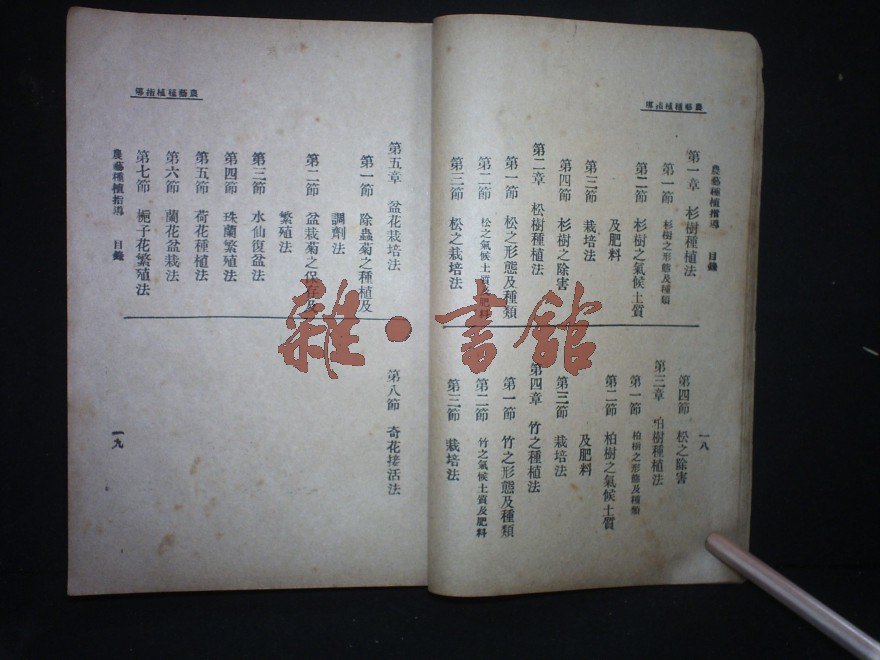 農藝種植指導
農藝種植指導　目錄
一八
第一章　杉樹種植法
第一節　杉樹之形態及種類
第二節　杉樹之氣候土質
及肥料
第三節　栽培法
第四節　杉樹之除害
第二章　松樹種植法
第一節　松之形態及種類
第二節　松之氣候土質及肥料
第三節　松之栽培法
第四節　松之除害
第三章　柏樹種植法
第一節　柏樹之形態及種類
第二節　柏樹之氣候土質
及肥料
第三節　栽培法
第四章　竹之種植法
第一節　竹之形態及種類
第二節　竹之氣候土質及肥料
第三節　栽培法
農藝種植指導
第五章　盆花栽培法
第一節　除蟲菊之種植及
調劑法
第二節　盆栽菊之保存及
繁殖法
第三節　水仙復盆法
第四節　珠蘭繁殖法
第五節　荷花種植法
第六節　蘭花盆栽法
第七節　梔子花繁殖法
第八節　奇花接活法
農藝種植指導　目錄
一九
雜·書館